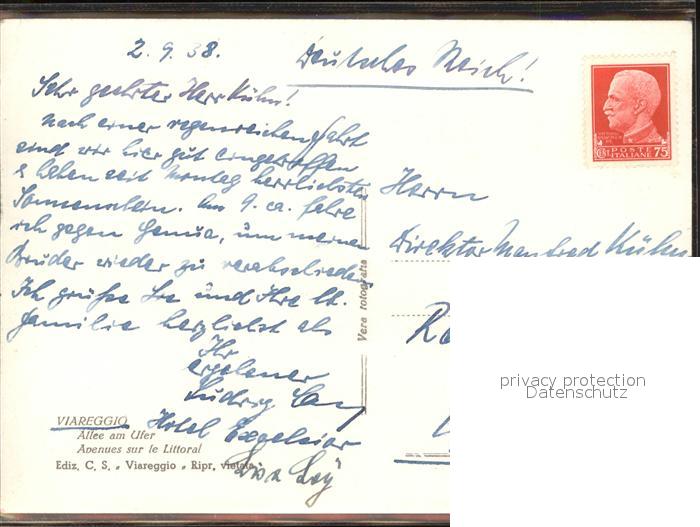 2. 9. 38.
Deutsches Reich!
Sehr geehrter Herr Kühn!
Nach einer regenreichen Fahrt
sind wir hier gut eingetroffen
& haben seit Montag herrlichsten
Sonnenschein. Am 9. ca. fahre
ich gegen Genua, um meinen
Bruder wieder zu verabschieden
Ich grüße Sie und Ihre lb.
Familie herzlichst als
Ihr
ergebener
Ludwig
Hotel Excelsior
POSTE
ITALIANE
75
Herrn
Direktor Manfred Kühn
Vera fotografia
privacy protection
Datenschutz
VIAREGGIO
Allee am Ufer
Avenues sur le Littoral
Ediz. C. S. - Viareggio - Ripr. vietata